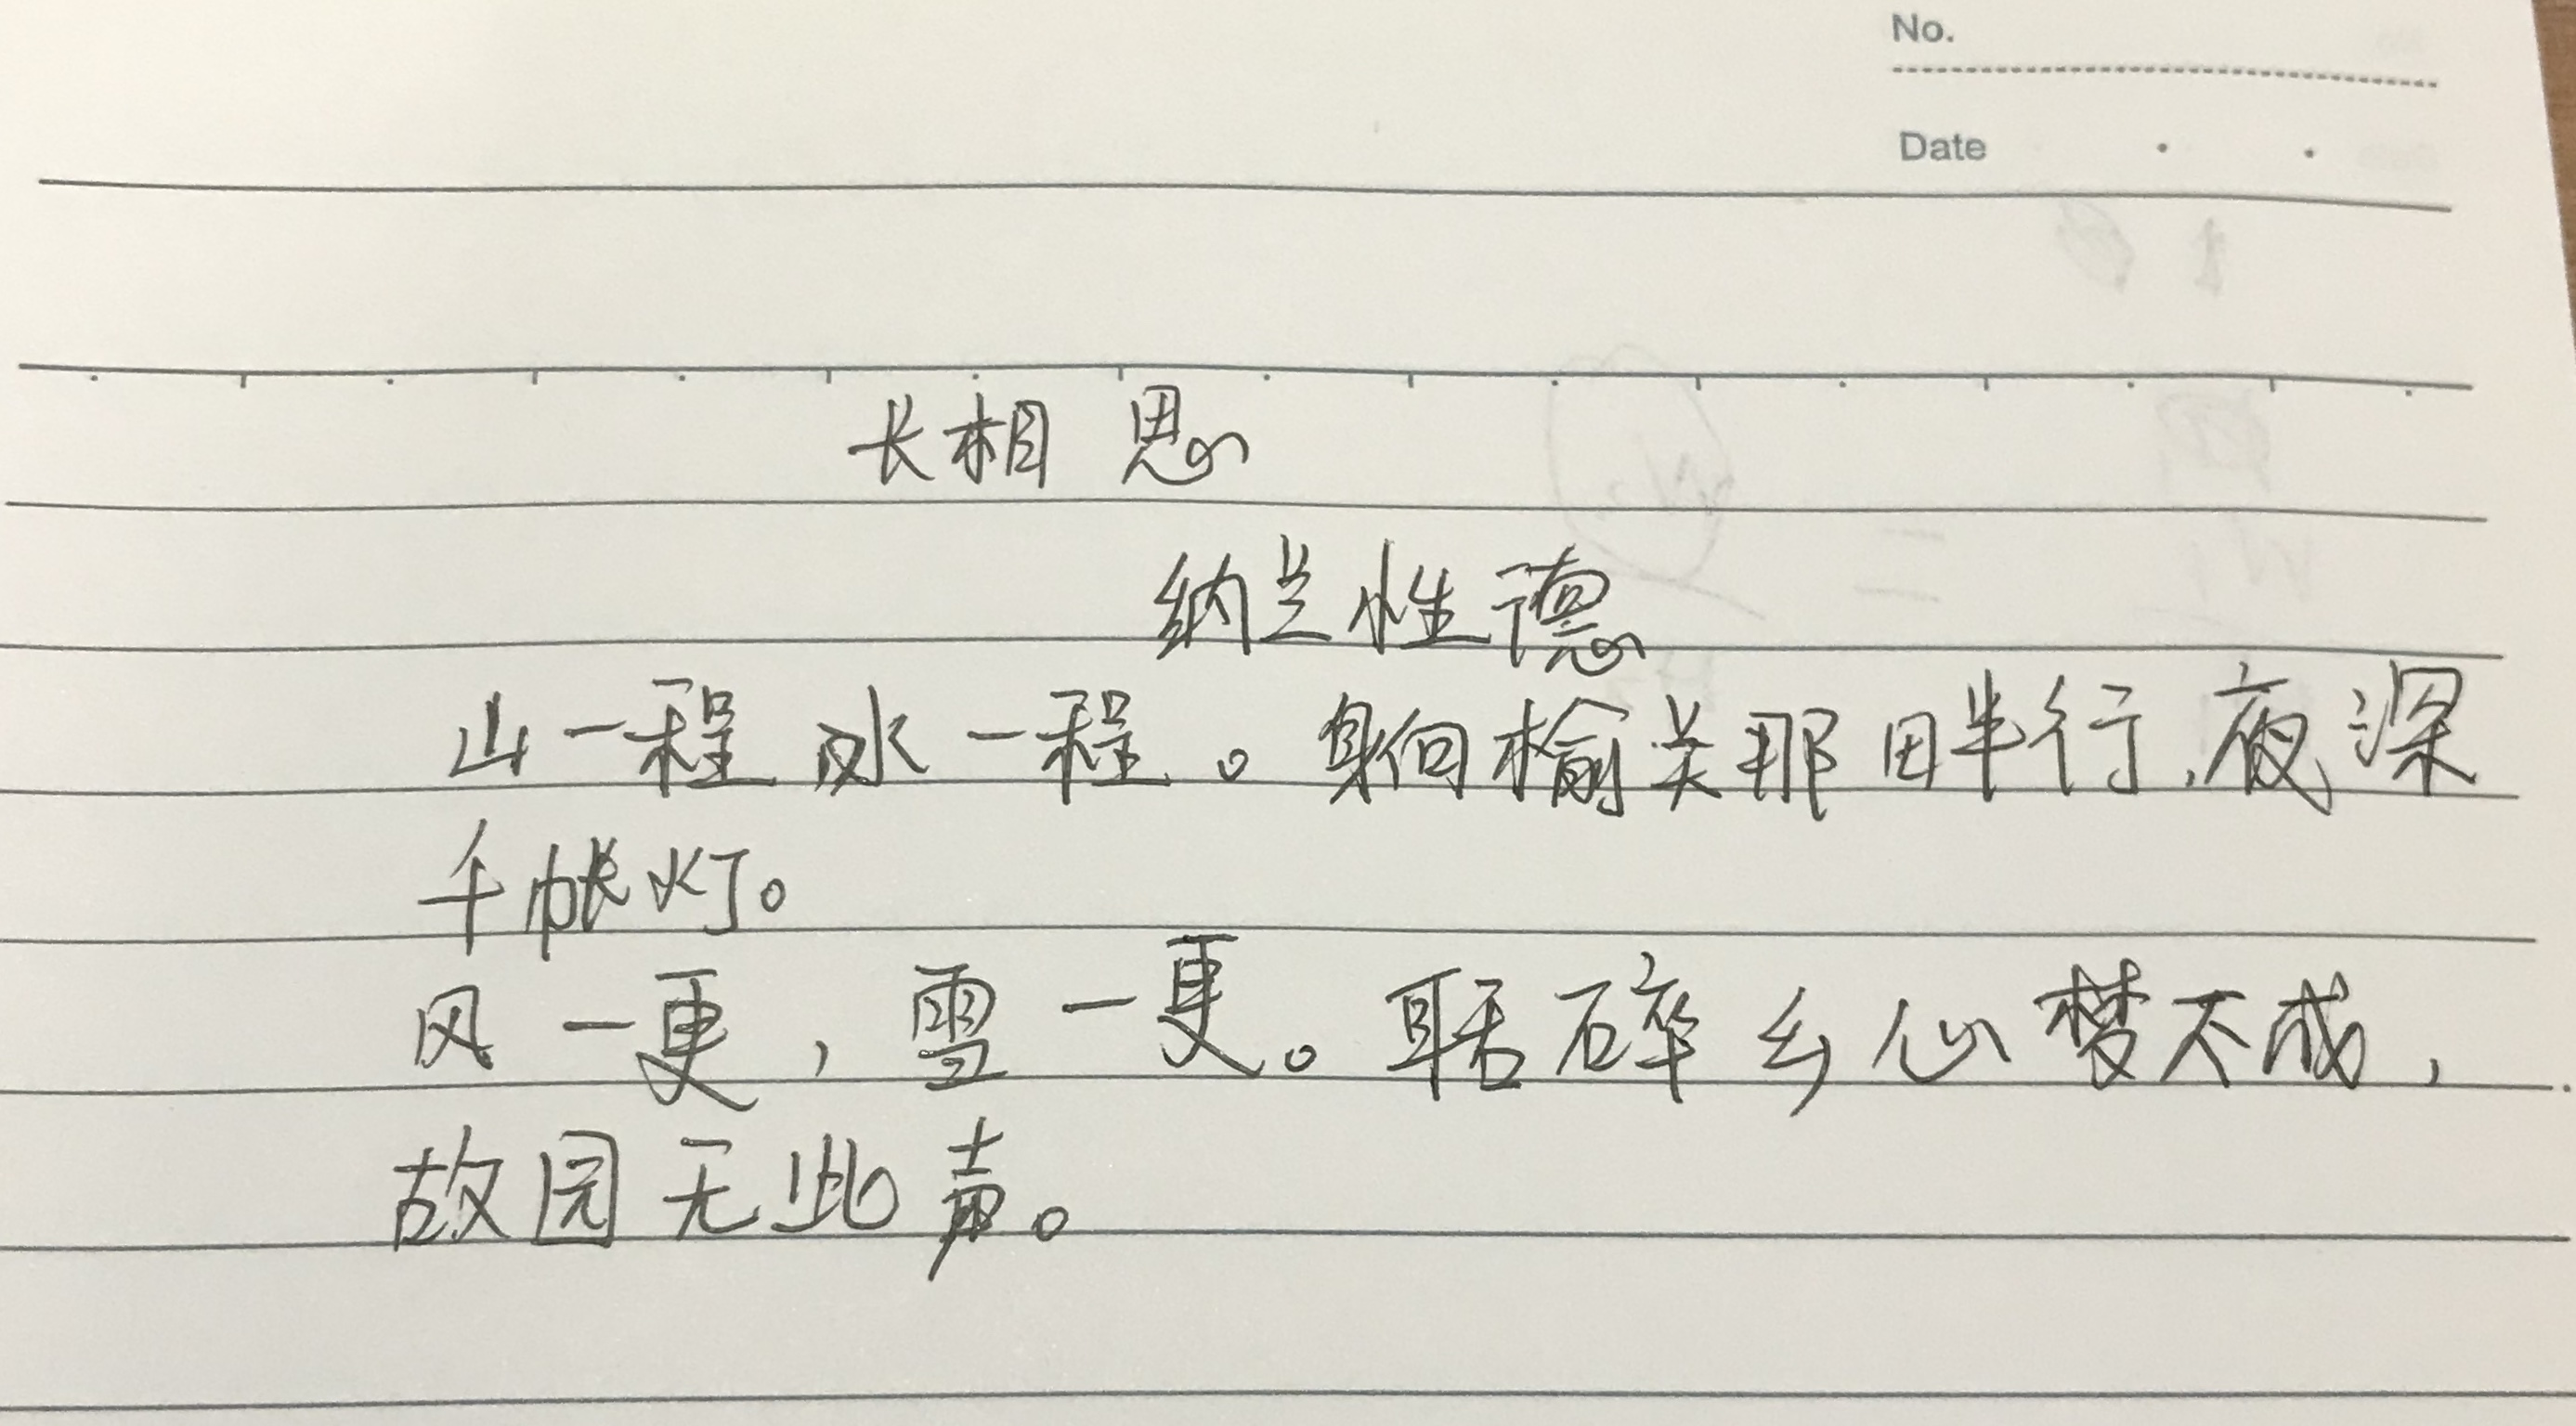 No.
Date
长相思
纳兰性德
山一程 水一程。身向榆关那畔行,夜深
千帐灯。
风一更,雪一更。聒碎乡心梦不成,
故园无此声。